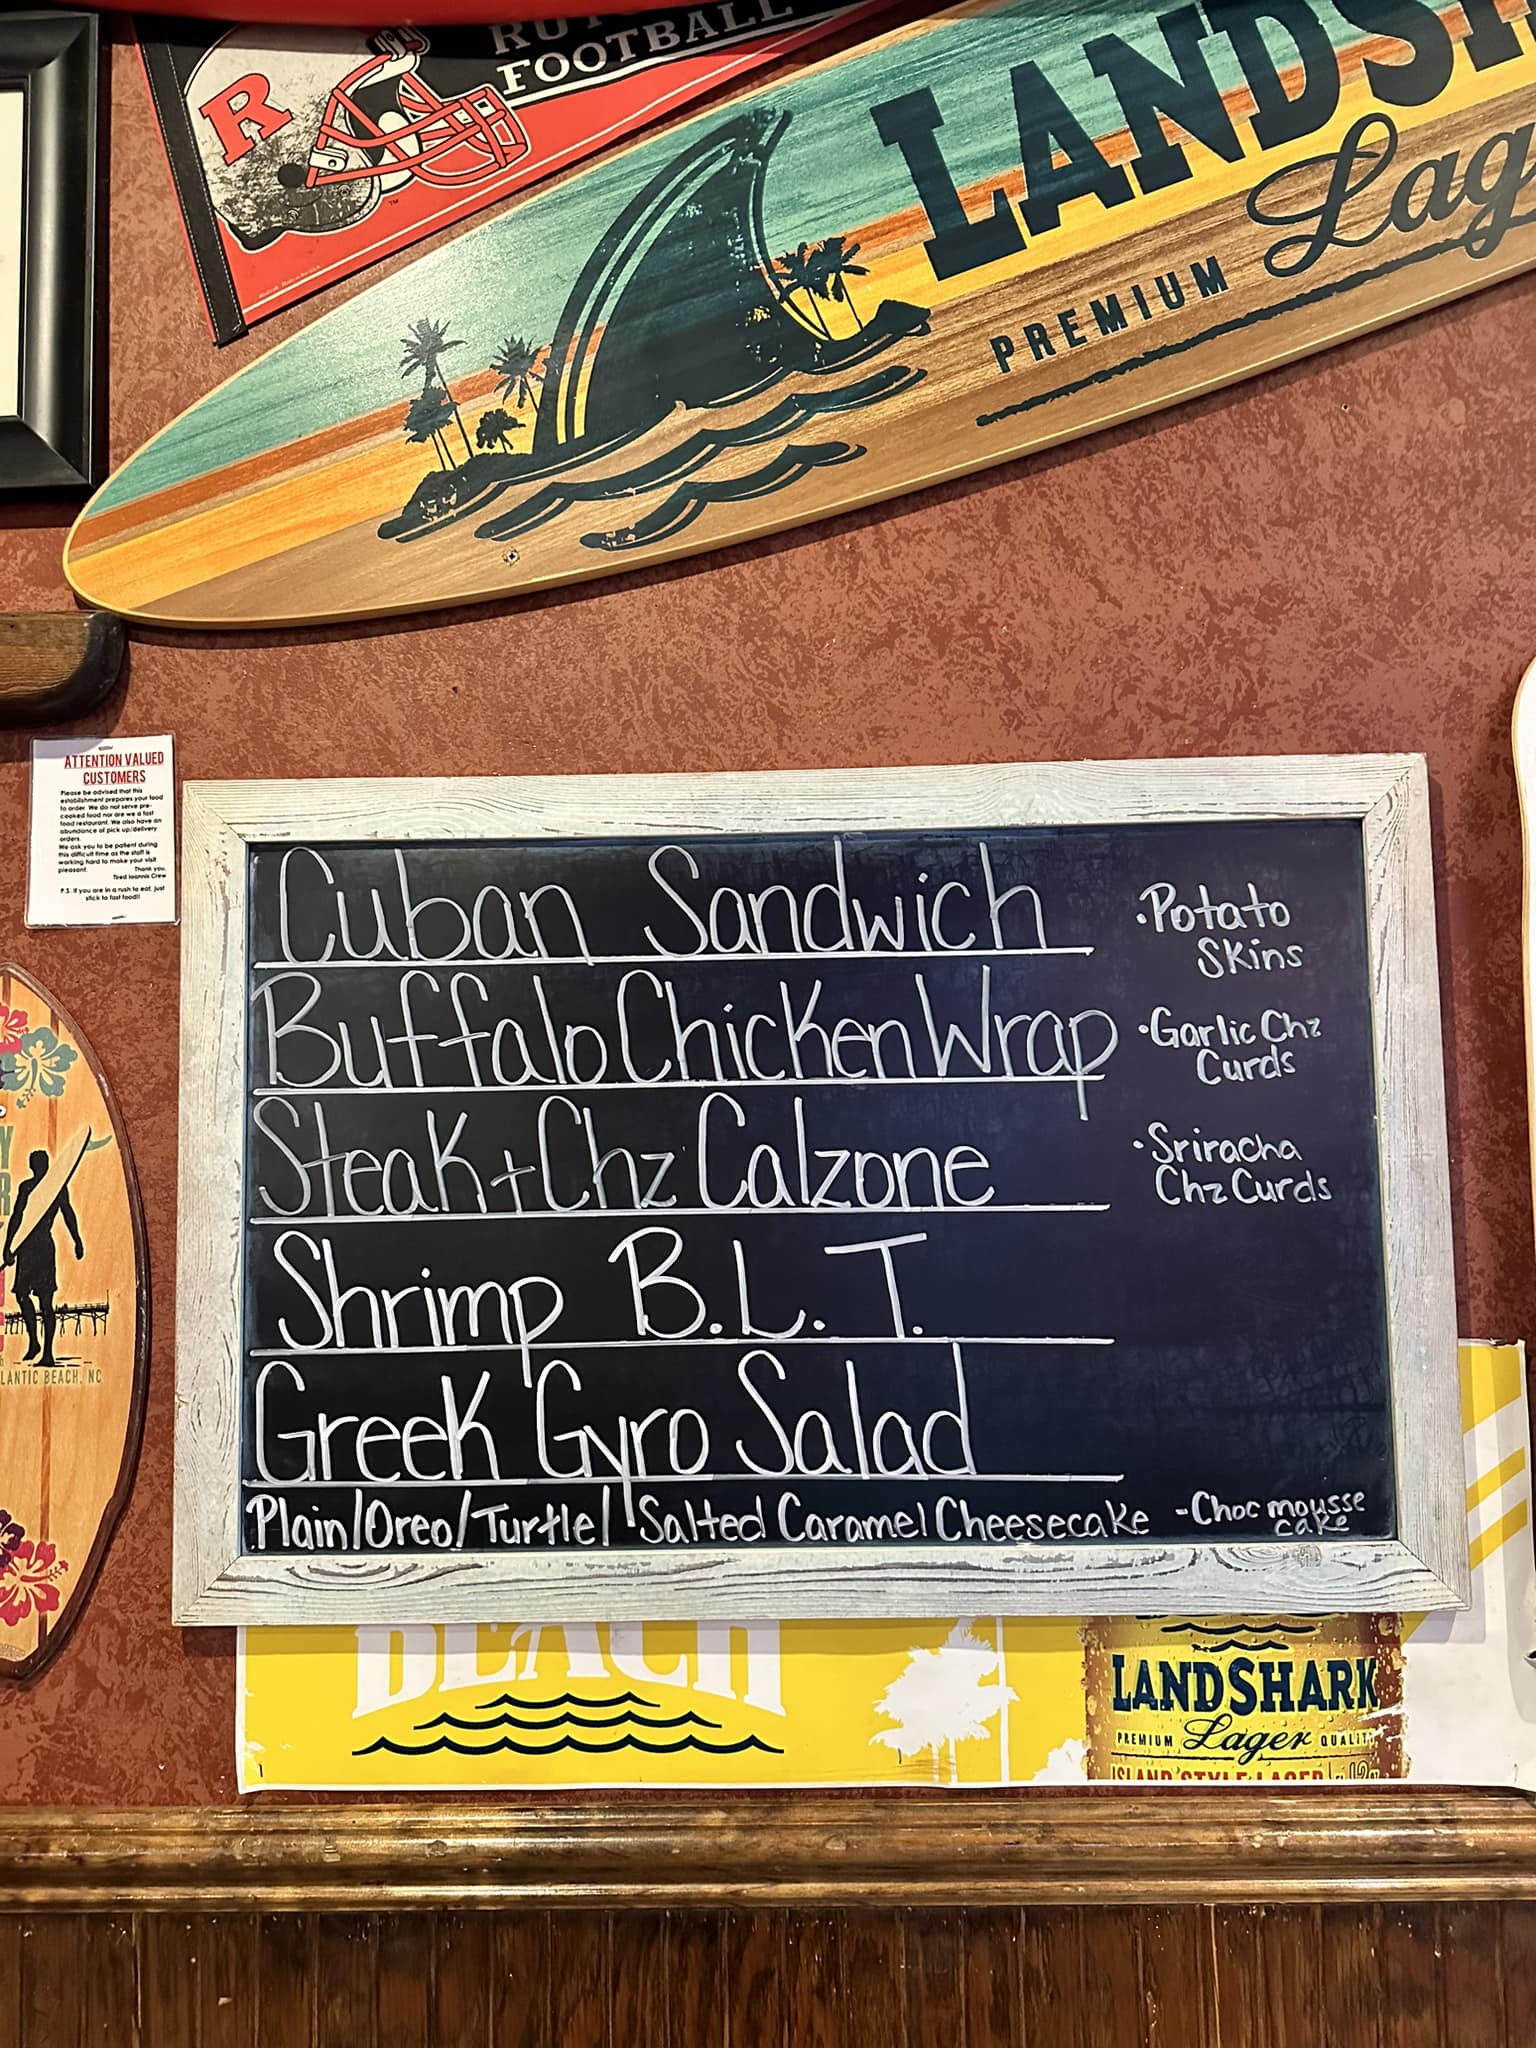 R
FOOTBALL
LANDS
PREMIUM Lag
ATTENTION VALUED
CUSTOMERS
Please be advised that this
establishment prepares your food
to order. We do not serve pre-
cooked food nor are we a fast
food restaurant. We also have an
abundance of pick up/delivery
orders.
We ask you to be patient during
this difficult time as the staff is
working hard to make your visit
pleasant.
Thank you,
Tired Ioannis Crew
P.S. If you are in a rush to eat, just
stick to fast food!!
Cuban Sandwich
Buffalo Chicken Wrap
Steak + Chz Calzone
Shrimp B.L.T.
Greek Gyro Salad
Plain/Oreo/Turtle/ Salted Caramel Cheesecake
·Potato
Skins
·Garlic Chz
Curds
·Sriracha
Chz Curds
-Choc mousse
cake
LANTIC BEACH, NC
BEACH
LANDSHARK
PREMIUM Lager QUALITY
ISLAND STYLE LAGER